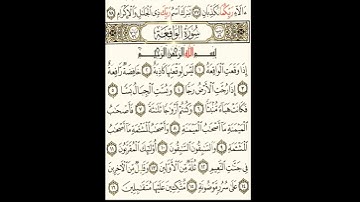 ءَالَآءِ رَبِّكُمَا تُكَذِّبَانِ ٧٧ تَبَٰرَكَ ٱسْمُ رَبِّكَ ذِى ٱلْجَلَٰلِ وَٱلْإِكْرَامِ ٧٨
سُورَةُ الوَاقِعَة
بِسْمِ ٱللَّهِ ٱلرَّحْمَٰنِ ٱلرَّحِيمِ
إِذَا وَقَعَتِ ٱلْوَاقِعَةُ ١ لَيْسَ لِوَقْعَتِهَا كَاذِبَةٌ ٢ خَافِضَةٌ رَّافِعَةٌ
٣ إِذَا رُجَّتِ ٱلْأَرْضُ رَجًّا ٤ وَبُسَّتِ ٱلْجِبَالُ بَسًّا ٥
فَكَانَتْ هَبَآءً مُّنۢبَثًّا ٦ وَكُنتُمْ أَزْوَٰجًا ثَلَٰثَةً ٧ فَأَصْحَٰبُ
ٱلْمَيْمَنَةِ مَآ أَصْحَٰبُ ٱلْمَيْمَنَةِ ٨ وَأَصْحَٰبُ ٱلْمَشْـَٔمَةِ مَآ أَصْحَٰبُ
ٱلْمَشْـَٔمَةِ ٩ وَٱلسَّٰبِقُونَ ٱلسَّٰبِقُونَ ١٠ أُو۟لَٰٓئِكَ ٱلْمُقَرَّبُونَ ١١
فِى جَنَّٰتِ ٱلنَّعِيمِ ١٢ ثُلَّةٌ مِّنَ ٱلْأَوَّلِينَ ١٣ وَقَلِيلٌ مِّنَ ٱلْءَاخِرِينَ
١٤ عَلَىٰ سُرُرٍ مَّوْضُونَةٍ ١٥ مُّتَّكِـِٔينَ عَلَيْهَا مُتَقَٰبِلِينَ ١٦